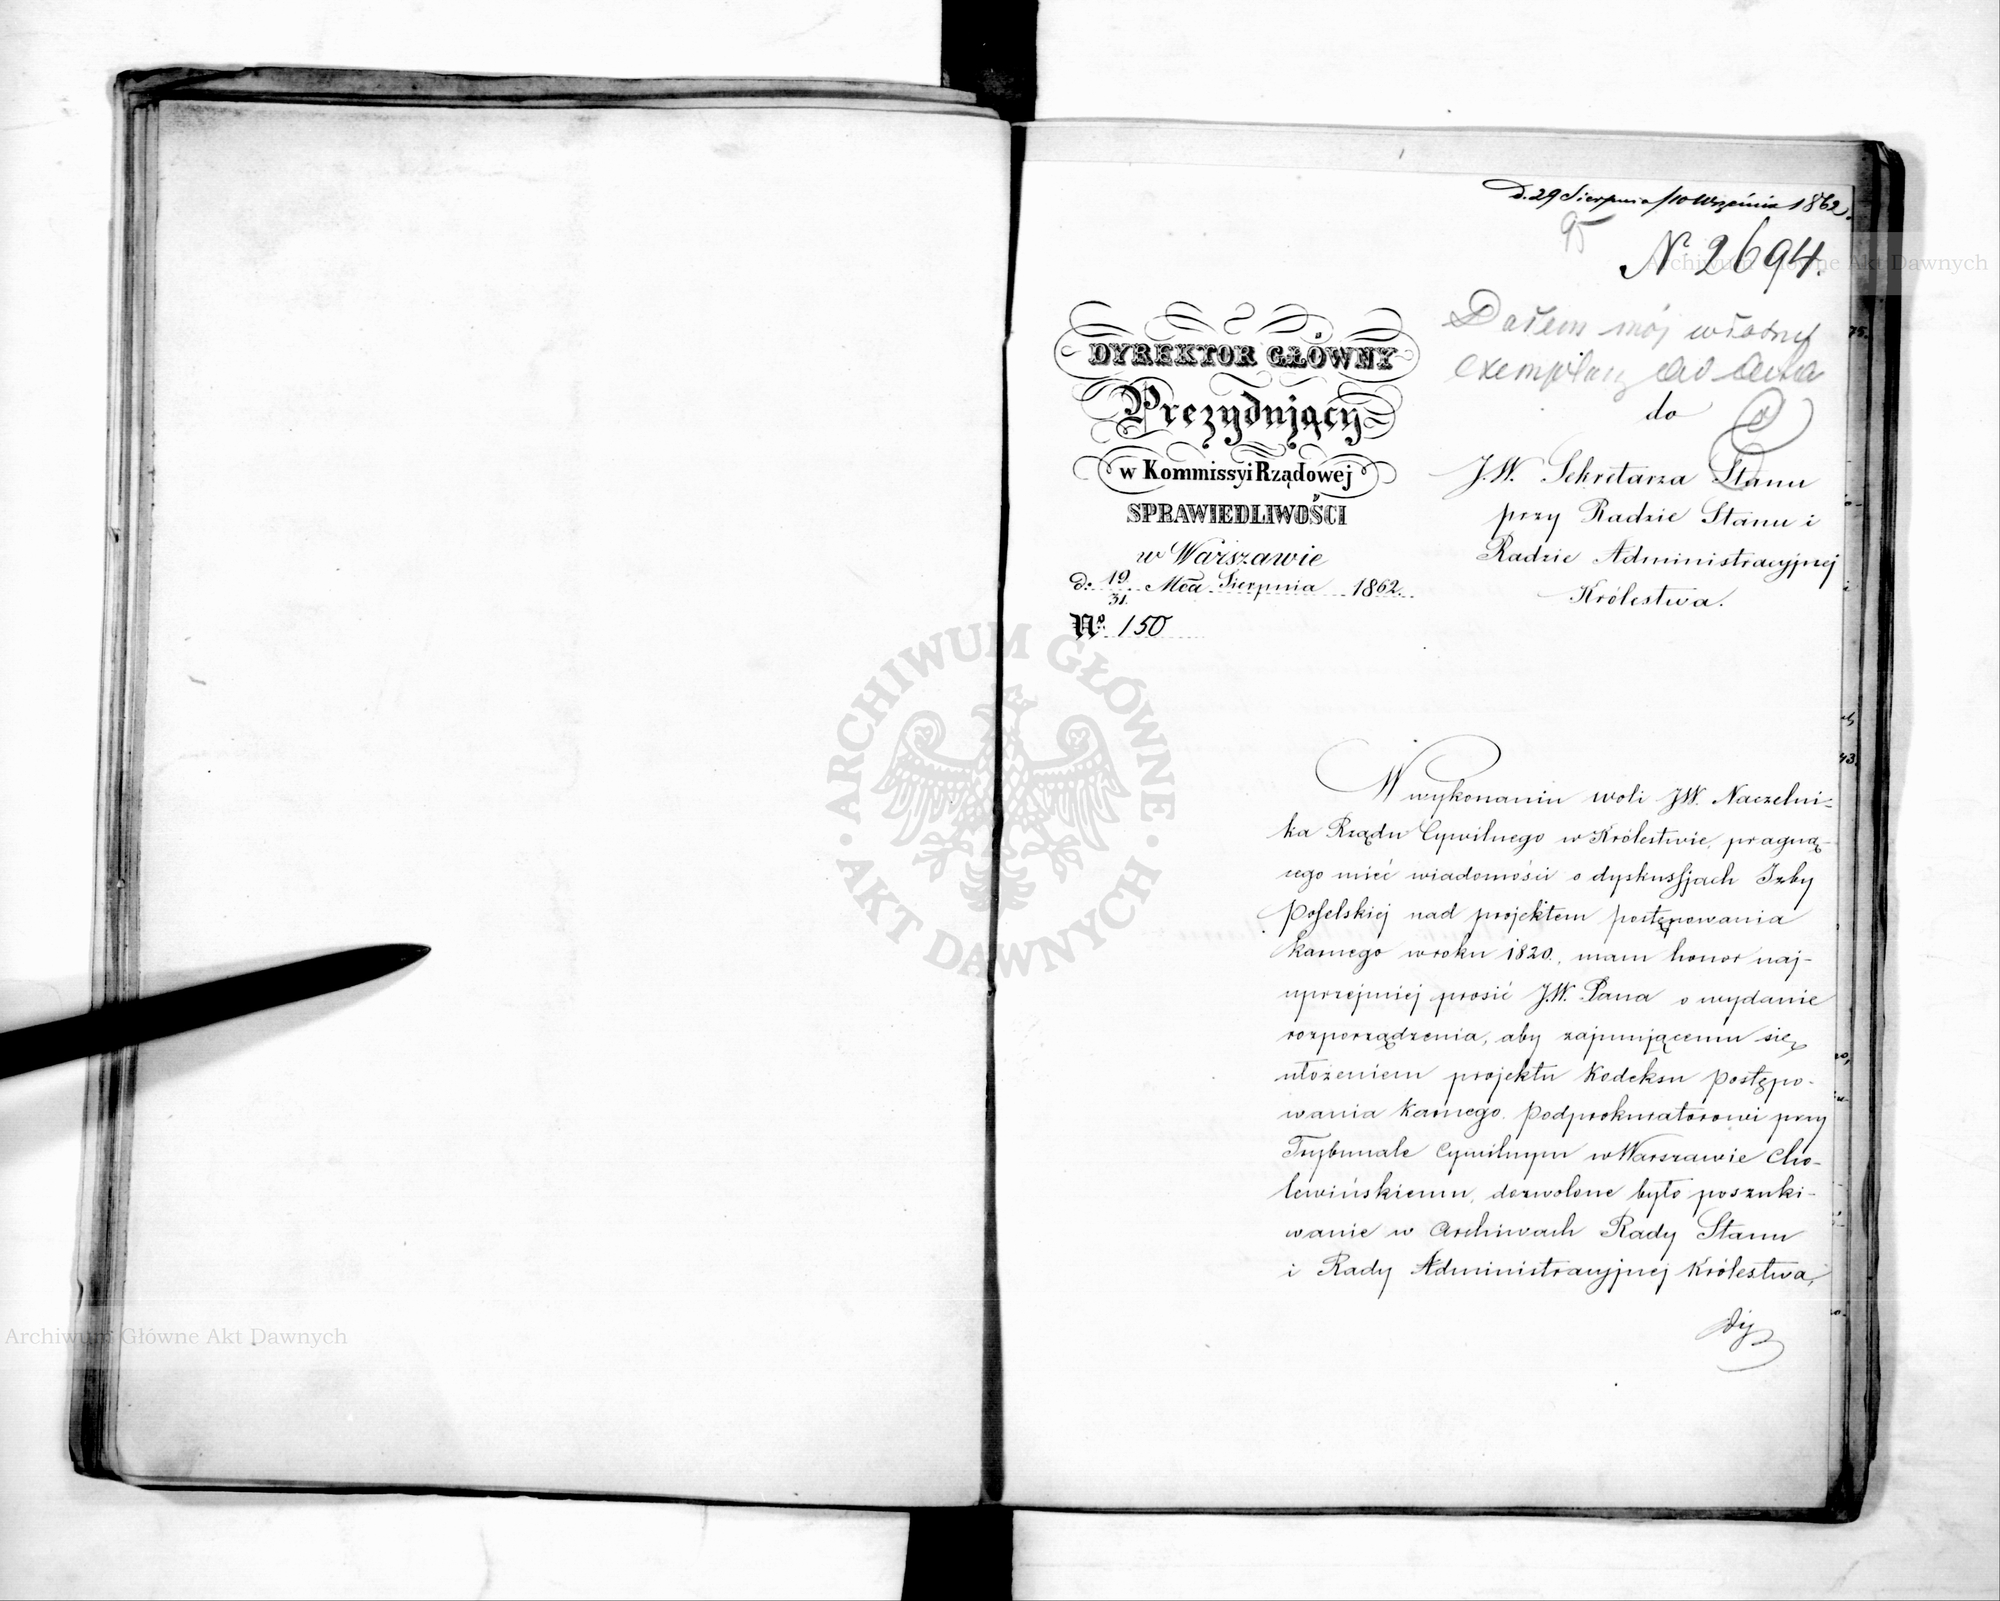 d. 29 Sierpnia/10 Września 1862.
95
N. 2694.
Dałem mój własny
exemplarz ad acta
DYREKTOR GŁÓWNY
Prezydujący
w Kommissyi Rządowej
SPRAWIEDLIWOŚCI
w Warszawie
d. 19/31 Mca Sierpnia 1862.
No 150
do
J.W. Sekretarza Stanu
przy Radzie Stanu i
Radzie Administracyjnej
Królestwa.
W wykonaniu woli JW. Naczelni-
ka Rządu Cywilnego w Królestwie, pragną-
cego mieć wiadomości o dyskussjach Izby
Poselskiej nad projektem postępowania
karnego w roku 1820., mam honor naj-
uprzejmiej prosić J.W. Pana o wydanie
rozporządzenia, aby zajmującemu się
ułożeniem projektu Kodeksu Postępo-
wania Karnego Podprokuratorowi przy
Trybunale Cywilnym w Warszawie Cho-
lewińskiemu, dozwolone było poszuki-
wanie w Archiwach Rady Stanu
i Rady Administracyjnej Królestwa,
ARCHIWUM GŁÓWNE
AKT DAWNYCH
Archiwum Główne Akt Dawnych
Archiwum Główne Akt Dawnych